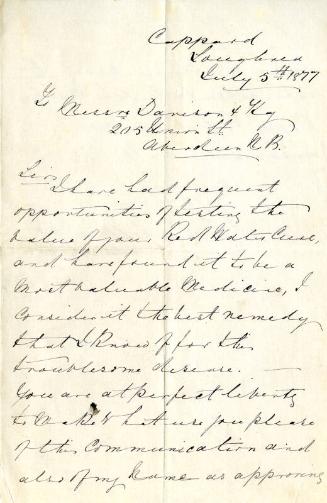 Cappard
Loughrea
July 5th 1877
To Messrs Davison & Kay
205 Union St
Aberdeen N.B.
Sirs
I have had frequent
opportunities of testing the
value of your Red Water Cure,
and have found it to be a
Most valuable Medicine, I
consider it the best remedy
that I know of for this
troublesome disease. —
You are at perfect liberty
to Make what use you please
of this Communication and
also of my Name as approving